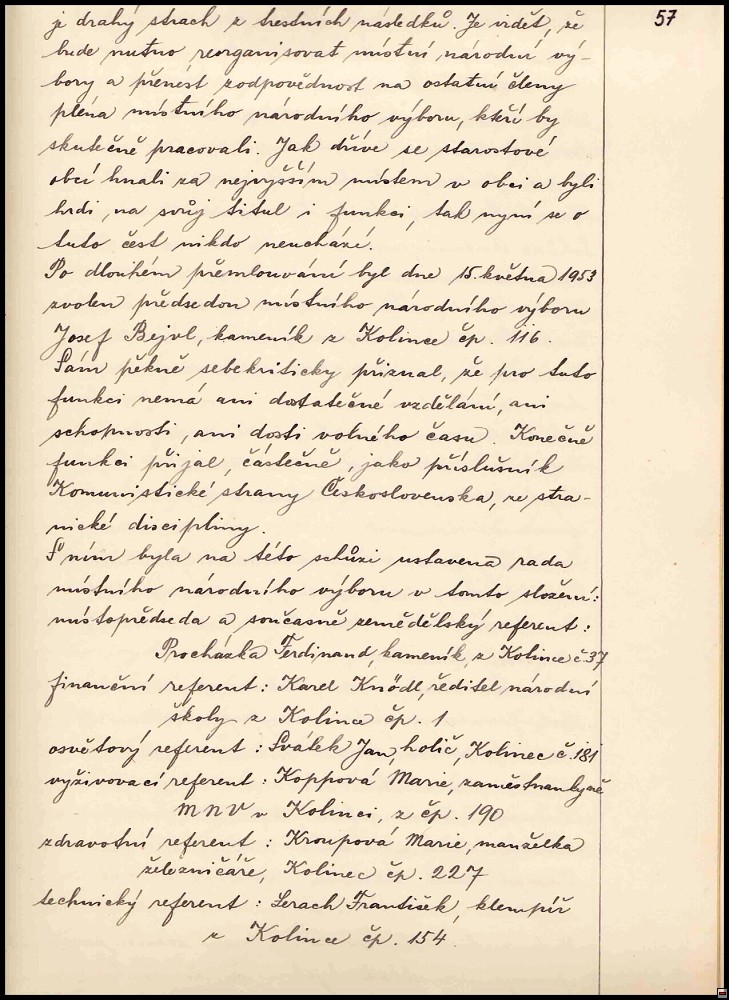 57
je drahý strach z trestních následků. Je vidět, že
bude nutno reorganisovat místní národní vý-
bory a přenést zodpovědnost na ostatní členy
pléna místního národního výboru, kteří by
skutečně pracovali. Jak dříve se starostové
obcí hnali za nejvyšším místem v obci a byli
hrdi, na svůj titul i funkci, tak nyní se o
tuto čest nikdo neuchází.
Po dlouhém přemlouvání byl dne 15. května 1953
zvolen předsedou místního národního výboru
Josef Bejvl, kameník z Kolince čp. 116.
Sám pěkně sebekriticky přiznal, že pro tuto
funkci nemá ani dostatečné vzdělání, ani
schopnosti, ani dosti volného času. Konečně
funkci přijal, částečně, jako příslušník
Komunistické strany Československa, ze stra-
nické disciplíny.
S ním byla na této schůzi ustavena rada
místního národního výboru v tomto složení:
místopředseda a současně zemědělský referent:
Procházka Ferdinand, kameník, z Kolince č. 37
finanční referent: Karel Knödl, ředitel národní
školy z Kolince čp. 1
osvětový referent: Svátek Jan, holič, Kolinec č. 181
vyživovací referent: Koppová Marie, zaměstnankyně
MNV v Kolinci, z čp. 190
zdravotní referent: Kroupová Marie, manželka
železničáře, Kolinec čp. 227
technický referent: Lerach František, klempíř
z Kolince čp. 154.